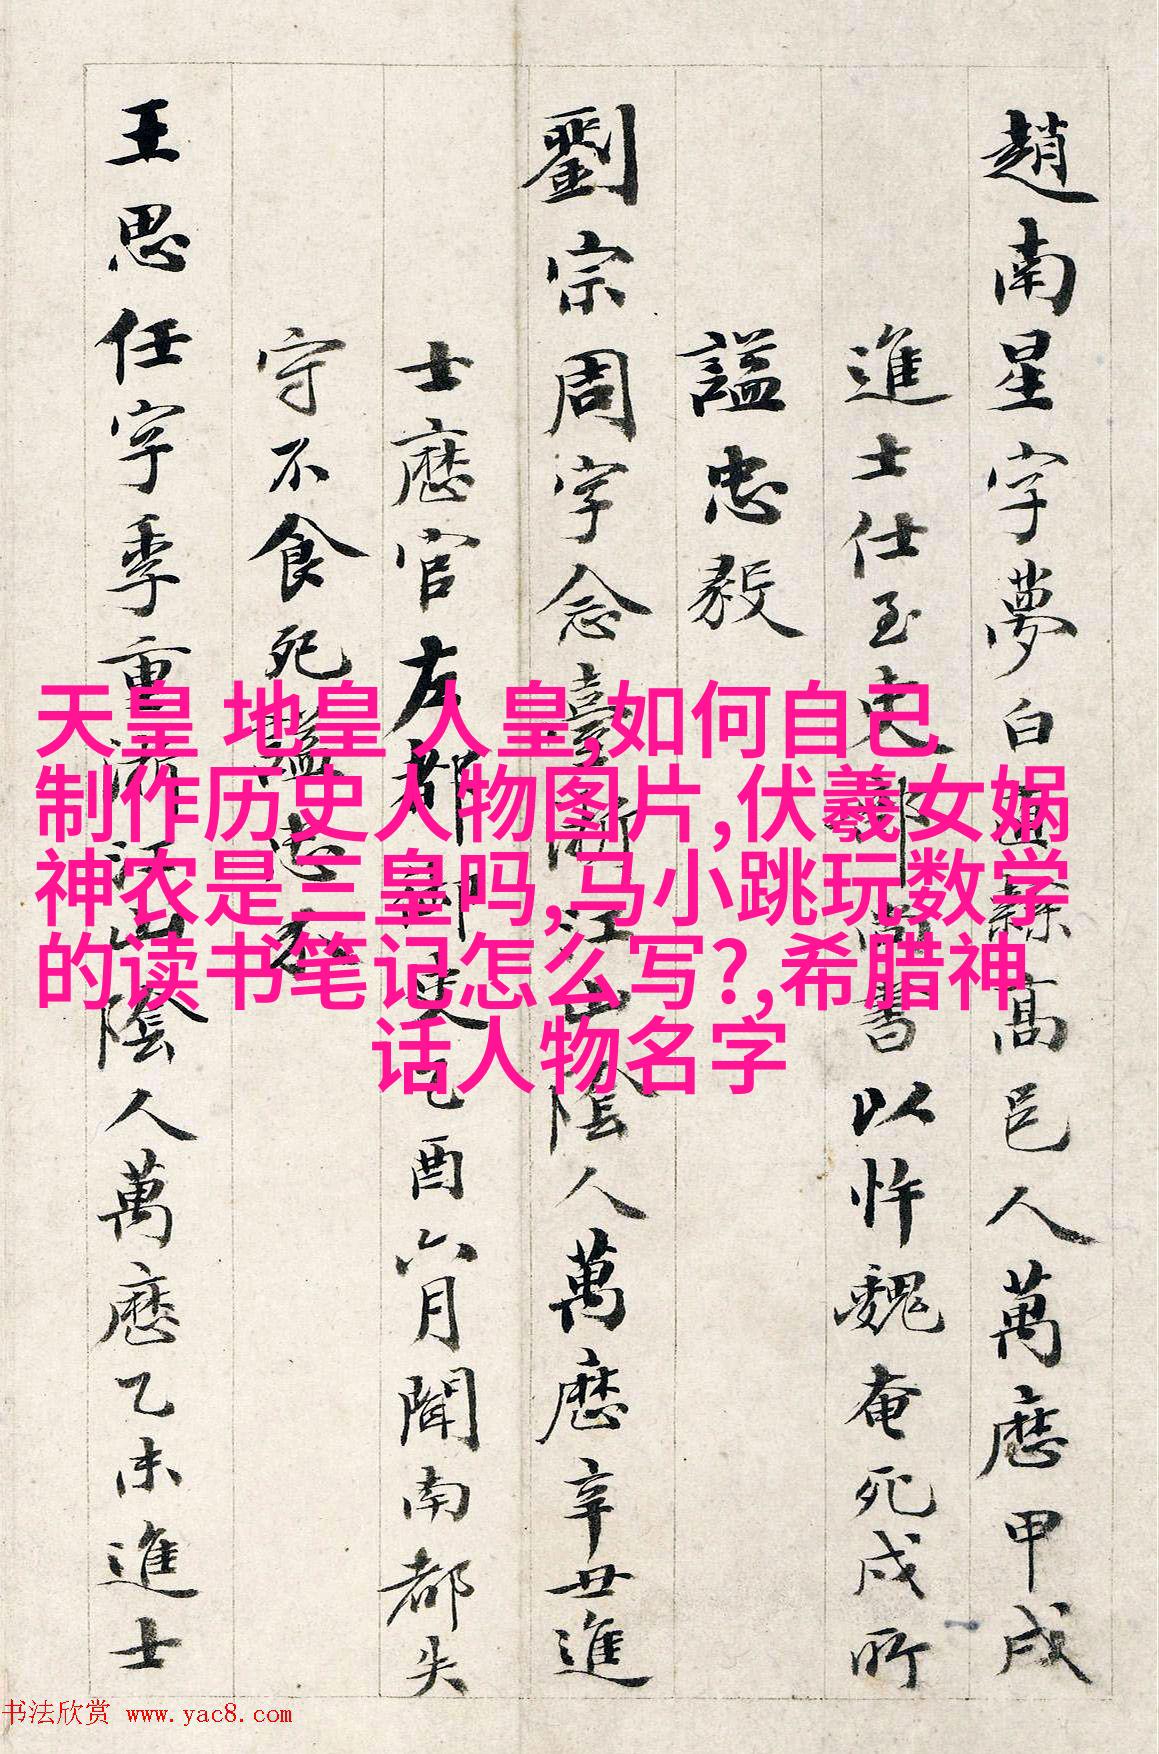 趙南星字夢白直隸高邑人萬曆甲戌
進士仕至吏部尚書以忤魏奄死戍所
謚忠毅
劉宗周字念臺浙江山陰人萬曆辛丑進
士歷官左都御史乙酉六月聞南都失
守不食死謚忠
王思任字季重浙江山陰人萬曆乙未進士
天皇 地皇 人皇,如何自己
制作历史人物图片,伏羲女娲
神农是三皇吗,马小跳玩数学
的读书笔记怎么写?,希腊神
话人物名字
书法欣赏 www.yac8.com